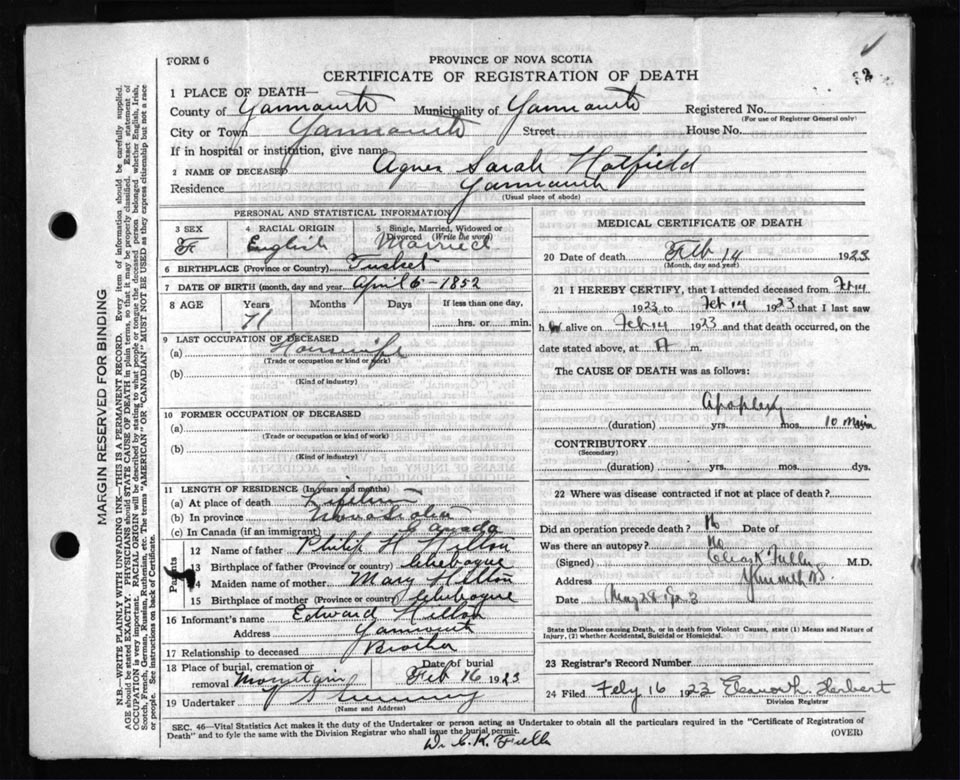 FORM 6
PROVINCE OF NOVA SCOTIA
CERTIFICATE OF REGISTRATION OF DEATH
1 PLACE OF DEATH—
County of Yarmouth Municipality of Yarmouth Registered No.
(For use of Registrar General only)
City or Town Yarmouth Street House No.
If in hospital or institution, give name
2 NAME OF DECEASED Agnes Sarah Hatfield
Residence Yarmouth
(Usual place of abode)
PERSONAL AND STATISTICAL INFORMATION
3 SEX F
4 RACIAL ORIGIN English
5 Single, Married, Widowed or Divorced (Write the word) Married
6 BIRTHPLACE (Province or Country) Tusket
7 DATE OF BIRTH (month, day and year) April 6 - 1852
8 AGE Years Months Days If less than one day,
71 hrs. or min.
9 LAST OCCUPATION OF DECEASED
(a) Housewife
(Trade or occupation or kind of work)
(b)
(Kind of industry)
10 FORMER OCCUPATION OF DECEASED
(a)
(Trade or occupation or kind of work)
(b)
(Kind of industry)
11 LENGTH OF RESIDENCE (In years and months)
(a) At place of death Lifetime
(b) In province Nova Scotia
(c) In Canada (if an immigrant) Canada
Parents
12 Name of father Philip H Hilton
13 Birthplace of father (Province or country) Chebogue
14 Maiden name of mother Mary Hilton
15 Birthplace of mother (Province or country) Chebogue
16 Informant's name Edward Hilton
Address Yarmouth
17 Relationship to deceased Brother
18 Place of burial, cremation or removal Mountain Date of burial Feb 16 1923
19 Undertaker
(Name and Address)
MEDICAL CERTIFICATE OF DEATH
20 Date of death Feb 14 1923
(Month, day and year)
21 I HEREBY CERTIFY, that I attended deceased from Feb 14
1923 to Feb 14 1923 that I last saw
h er alive on Feb 14 1923 and that death occurred, on
date stated above, at A m.
The CAUSE OF DEATH was as follows:
Apoplexy
(duration) yrs. mos. 10 Min
CONTRIBUTORY
(Secondary)
(duration) yrs. mos. dys.
22 Where was disease contracted if not at place of death?
Did an operation precede death? No Date of
Was there an autopsy? No
(Signed) M.D.
Address Yarmouth NS
Date
State the Disease causing Death, or in death from Violent Causes, state (1) Means and Nature of
Injury, (2) whether Accidental, Suicidal or Homicidal.
23 Registrar's Record Number
24 Filed Feby 16 1923 Eleanor H. Herbert
Division Registrar
SEC. 46—Vital Statistics Act makes it the duty of the Undertaker or person acting as Undertaker to obtain all the particulars required in the "Certificate of Registration of
Death" and to fyle the same with the Division Registrar who shall issue the burial permit. (OVER)
Dr. C. K. Fuller
MARGIN RESERVED FOR BINDING
N.B.—WRITE PLAINLY WITH UNFADING INK—THIS IS A PERMANENT RECORD. Every item of information should be carefully supplied.
AGE should be stated EXACTLY. PHYSICIANS should STATE CAUSE OF DEATH in plain terms, so that it may be properly classified. Exact statement of
OCCUPATION is very important. RACIAL ORIGIN will be described by stating to what people or tongue the deceased person belonged whether English, Irish,
Scotch, French, German, Russian, Ruthenian, etc. The terms "AMERICAN" OR "CANADIAN" MUST NOT BE USED as they express citizenship but not a race
or people. See instructions on back of Certificate.